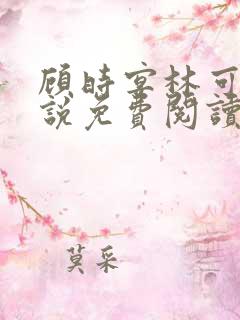 顾时宴林可
說免費閱讀
莫采